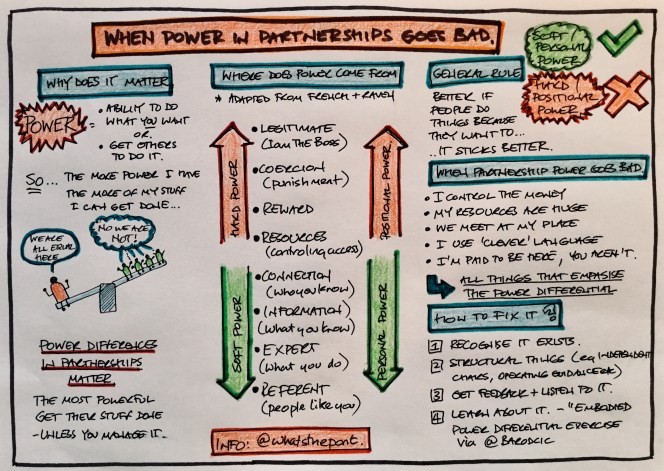 WHEN POWER IN PARTNERSHIPS GOES BAD.
SOFT/
PERSONAL
POWER
HARD/
POSITIONAL
POWER
WHY DOES IT MATTER
POWER
=
• ABILITY TO DO
WHAT YOU WANT
OR.
• GET OTHERS
TO DO IT.
SO... THE MORE POWER I HAVE
THE MORE OF MY STUFF
I CAN GET DONE...
WE ARE
ALL EQUAL
HERE
NO WE ARE
NOT!
POWER DIFFERENCES
IN PARTNERSHIPS
MATTER
THE MOST POWERFUL
GET THEIR STUFF DONE
- UNLESS YOU MANAGE IT.
WHERE DOES POWER COME FROM
* ADAPTED FROM FRENCH + RAVEN
HARD POWER
SOFT POWER
• LEGITIMATE
(I am THE BOSS)
• COERCION
(punishment)
• REWARD
• RESOURCES
(controlling access)
• CONNECTION
(who you know)
• INFORMATION
(what you know)
• EXPERT
(what you do)
• REFERENT
(people like you)
POSITIONAL POWER
PERSONAL POWER
INFO: @whatsthepont.
GENERAL RULE
BETTER IF
PEOPLE DO
THINGS BECAUSE
THEY WANT TO...
...IT STICKS BETTER.
WHEN PARTNERSHIP POWER GOES BAD
• I CONTROL THE MONEY
• MY RESOURCES ARE HUGE
• WE MEET AT MY PLACE
• I USE 'CLEVER' LANGUAGE
• I'M PAID TO BE HERE, YOU AREN'T.
ALL THINGS THAT EMPASISE
THE POWER DIFFERENTIAL
HOW TO FIX IT ?!
1 RECOGNISE IT EXISTS.
2 STRUCTURAL THINGS (eg INDEPENDENT
CHAIRS, OPERATING GUIDANCE etc)
3 GET FEEDBACK + LISTEN TO IT.
4 LEARN ABOUT IT. - "EMBODIED
POWER DIFFERENTIAL EXERCISE
VIA @BARODCIC